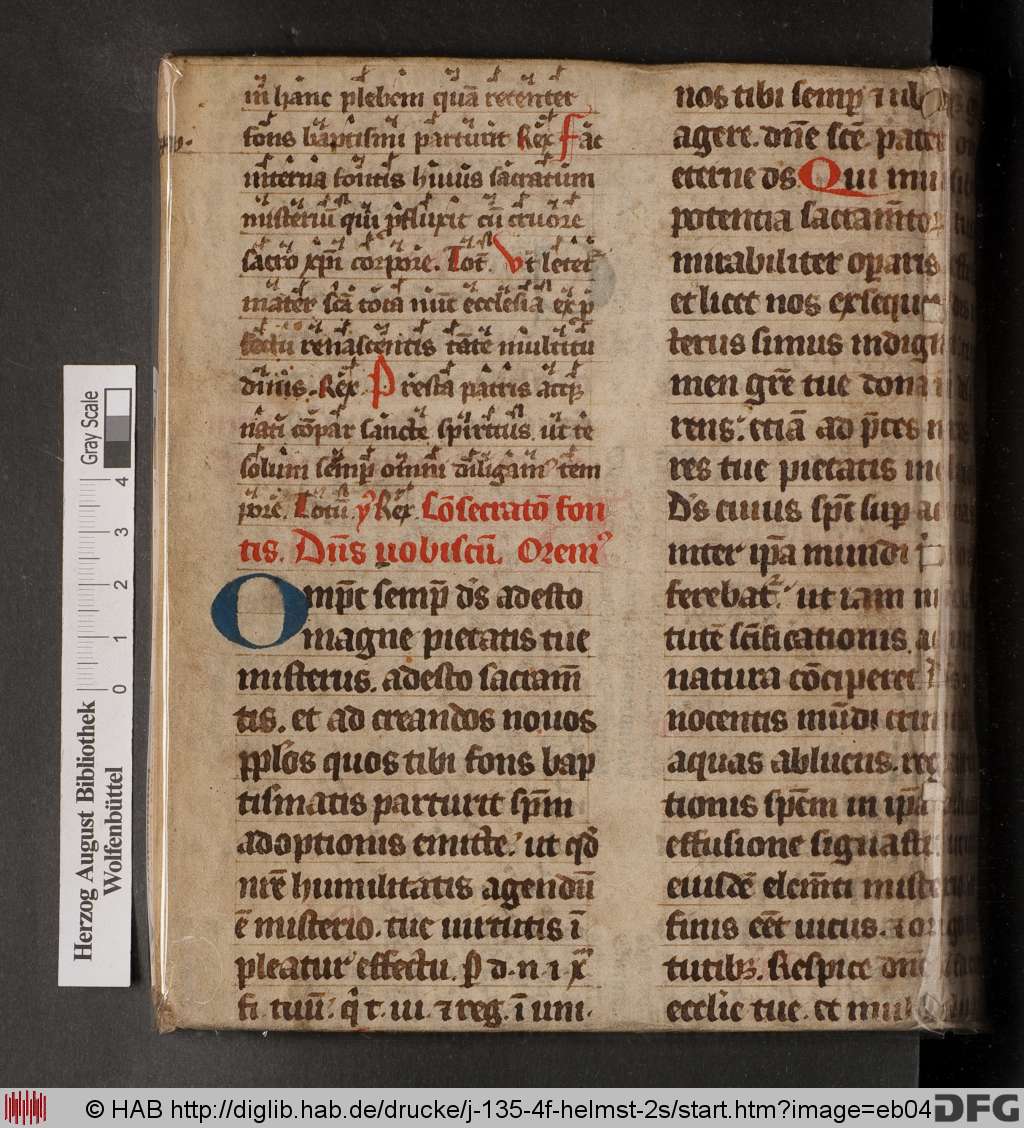 in hanc plebem quā retentet
fons baptismi parturit Rex Fac
interna fontis huius sacratum
misteriū qui p̄fluxit cū cruore
sacro xp̄i corpore. Tot̄. Ut letet᷑
mater scā tota nūc ecclesia ex p̄
fectu renascentis tāte multitu
dinis. Rex. Presta patris atqꝫ
nati cōpar sancte spiritus. ut te
solum semp̄ omni diligam᷒ tem
pore. Totū. Rex Cōsecratō fon
tis. Dn̄s uobiscū. Orem᷒
Omp̄t semp̄ ds̄ adesto
magne pietatis tue
misteriis. adesto sacram̄
tis. et ad creandos nouos
pp̄los quos tibi fons bap
tismatis parturit sp̄m
adoptionis emitte. ut qd̄
nr̄e humilitatis agendū
ē misterio. tue uirtutis ī
pleatur effectu. P d. n. i. x̄
fi. tuū. q̄ t. ui. ⁊ reg. ī uni.
nos tibi semp̄ ⁊ ub
agere. dn̄e sc̄e pater
eterne ds̄. Qui
potentia sacram̄to
mirabiliter operaris
et licet nos exseque
teriis simus indign
men gr̄e tue dona
rens. etiā ad p̄ces
res tue pietatis in
Ds̄ cuius sp̄c sup̄
inter ip̄a mundi
ferebat᷑. ut iam
tutē sc̄ificationis. a
natura cōciperet
nocentis mūdi crim
aquas abluens. reg
tionis sp̄em in ip̄a
effusione signasti.
eiusdē elem̄ti miste
finis eēt uicus. ⁊ or
tutibꝫ. Respice dn̄e
ecclīe tue. et mul
Gray Scale
4
3
2
1
0
Herzog August Bibliothek
Wolfenbüttel
© HAB http://diglib.hab.de/drucke/j-135-4f-helmst-2s/start.htm?image=eb04
DFG